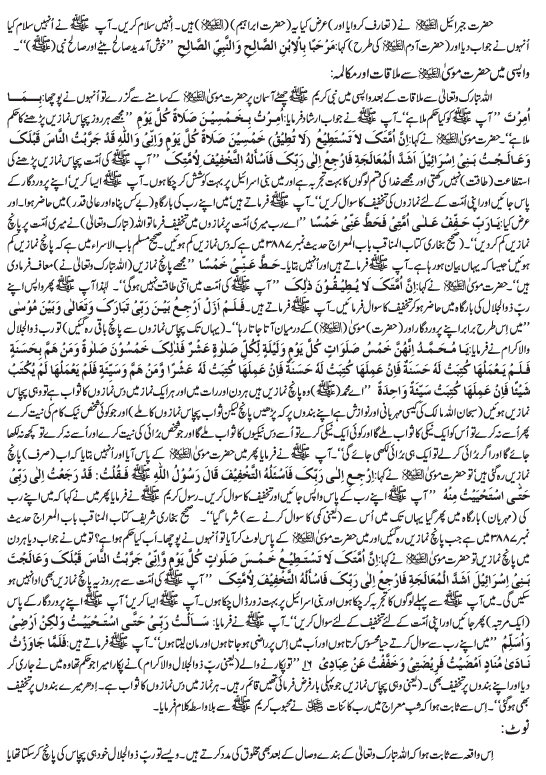 حضرت جبرائیل علیہ السلام نے (تعارف کروایا اور) عرض کیا یہ (حضرت ابراہیم) (علیہ السلام) ہیں۔ انہیں سلام کریں۔ آپ ﷺ نے اُنہیں سلام کیا
اُنہوں نے جواب دیا اور (حضرت آدم علیہ السلام کی طرح) کہا: مَرْحَبًا بِالْاِبْنِ الصَّالِحِ وَالنَّبِيِّ الصَّالِحِ ’’خوش آمدید صالح بیٹے اور صالح نبی (ﷺ)‘‘۔
واپسی میں حضرت موسیٰ علیہ السلام سے ملاقات اور مکالمہ:
اللہ تبارک وتعالیٰ سے ملاقات کے بعد واپسی میں نبی کریم ﷺ چھٹے آسمان پر حضرت موسیٰ علیہ السلام کے سامنے سے گزرے تو اُنہوں نے پوچھا: بِمَا
اُمِرْتَ ’’آپ ﷺ کو کیا حکم ملا ہے‘‘۔ آپ ﷺ نے جواب ارشاد فرمایا: اُمِرْتُ بِخَمْسِيْنَ صَلَاةً كُلَّ يَوْمٍ ’’مجھے ہر روز پچاس نمازیں پڑھنے کا حکم
ملا ہے‘‘۔ حضرت موسیٰ علیہ السلام نے کہا: اِنَّ اُمَّتَكَ لَا تَسْتَطِيْعُ (لَا تُطِيْقُ) خَمْسِيْنَ صَلَاةً كُلَّ يَوْمٍ وَاِنِّيْ وَاللّٰهِ قَدْ جَرَّبْتُ النَّاسَ قَبْلَكَ
وَعَالَجْتُ بَنِيْ اِسْرَائِيْلَ اَشَدَّ الْمُعَالَجَةِ فَارْجِعْ اِلٰى رَبِّكَ فَاسْاَلْهُ التَّخْفِيْفَ لِاُمَّتِكَ ’’آپ ﷺ کی اُمّت پچاس نمازیں پڑھنے کی
استطاعت (طاقت) نہیں رکھتی اور مجھے خدا کی قسم لوگوں کا بہت تجربہ ہے اور میں بنی اسرائیل پر بہت کوشش کر چکا ہوں۔ آپ ﷺ ایسا کریں‘ اپنے پروردگار کے
پاس جائیں اور اپنی اُمّت کے لئے نمازوں کی تخفیف کا سوال کریں‘‘۔ آپ ﷺ فرماتے ہیں میں اپنے رب کی بارگاہ (بے کس پناہ اور عالی قدر) میں حاضر ہوا۔ اور
عرض کیا: يَارَبِّ خَفِّفْ عَلٰى اُمَّتِيْ فَحَطَّ عَنِّيْ خَمْسًا ’’اے رب میری اُمّت پر نمازوں میں تخفیف فرما تو اللہ (تبارک وتعالیٰ) نے میری اُمّت پر پانچ
نمازیں کم کردیں‘‘۔ (صحیح بخاری کتاب المناقب باب المعراج حدیث نمبر ۳۸۸۷ میں ہے کہ دس نمازیں کم ہوئیں۔ صحیح مسلم باب الاسراء میں ہے کہ پانچ نمازیں کم
ہوئیں‘ جیسا کہ یہاں بیان ہو رہا ہے۔ آپ ﷺ فرماتے ہیں اور اُنہیں بتایا۔ حَطَّ عَنِّيْ خَمْسًا ’’مجھے پانچ نمازیں (اللہ تبارک وتعالیٰ نے) معاف فرمادی
ہیں‘‘۔ حضرت موسیٰ علیہ السلام نے کہا: اِنَّ اُمَّتَكَ لَا يُطِيْقُوْنَ ذٰلِكَ ’’آپ ﷺ کی اُمّت میں اتنی طاقت نہیں ہو گی‘‘۔ لہٰذا آپ ﷺ پھر واپس اپنے
ربّ ذوالجلال کی بارگاہ میں حاضر ہو کر تخفیف کا سوال کریں۔ آپ ﷺ فرماتے ہیں۔ فَلَمْ اَزَلْ اَرْجِعُ بَيْنَ رَبِّيْ تَبَارَكَ وَتَعَالٰى وَبَيْنَ مُوْسٰى
’’میں اِس طرح برابر اپنے پروردگار اور (حضرت) موسیٰ (علیہ السلام) کے درمیان آتا جاتا رہا‘‘۔ (یہاں تک پچاس نمازوں سے پانچ باقی رہ گئیں) تو رب ذوالجلال
والاکرام نے فرمایا: يَا مُحَمَّدُ اِنَّهُنَّ خَمْسُ صَلَوَاتٍ كُلَّ يَوْمٍ وَلَيْلَةٍ لِكُلِّ صَلٰوةٍ عَشْرٌ فَذٰلِكَ خَمْسُوْنَ صَلٰوةً وَمَنْ هَمَّ بِحَسَنَةٍ
فَلَمْ يَعْمَلْهَا كُتِبَتْ لَهُ حَسَنَةً فَاِنْ عَمِلَهَا كُتِبَتْ لَهُ عَشْرًا وَمَنْ هَمَّ بِسَيِّئَةٍ فَلَمْ يَعْمَلْهَا لَمْ يُكْتَبْ
شَيْئًا فَاِنْ عَمِلَهَا كُتِبَتْ سَيِّئَةً وَاحِدَةً ’’اے محمد (ﷺ) وہ پانچ نمازیں ہیں ہر دن اور رات میں اور ہر ایک نماز میں دس نمازوں کا ثواب ہے تو وہی پچاس
نمازیں ہوئیں‘ (سبحان اللہ مالک کی کیسی مہربانی اور نوازش ہے اپنے بندوں پر کہ پڑھیں پانچ لیکن ثواب پچاس نمازوں کا ملے) اور جو کوئی شخص نیک کام کی نیت کرے
پھر اُسے نہ کرے تو اُس کو ایک نیکی کا ثواب ملے گا اور کوئی ایک نیکی کرے تو اُسے دس نیکیوں کا ثواب ملے گا اور جو شخص برائی کی نیت کرے اور اُسے نہ کرے تو کچھ نہ لکھا
جائے گا اور اگر برائی کرلے تو ایک ہی برائی لکھی جائے گی‘‘۔ آپ ﷺ نے فرمایا پھر میں حضرت موسیٰ علیہ السلام کے پاس آیا اور اُنہیں بتایا کہ اب (صرف) پانچ
نمازیں رہ گئی ہیں‘ تو حضرت موسیٰ علیہ السلام نے کہا: اِرْجِعْ اِلٰى رَبِّكَ فَاسْئَلْهُ التَّخْفِيْفَ قَالَ رَسُوْلُ اللّٰهِ ﷺ فَقُلْتُ: قَدْ رَجَعْتُ اِلٰى رَبِّيْ
حَتّٰى اسْتَحْيَيْتُ مِنْهُ ’’آپ ﷺ اپنے رب کے پاس واپس جائیں اور تخفیف کا سوال کریں۔ رسول کریم ﷺ نے فرمایا پھر میں نے کہا کہ میں اپنے رب
کی (مہربان) بارگاہ میں پھر گیا یہاں تک میں اُس سے (یعنی کمی کا سوال کرنے سے) شرما گیا‘‘۔ صحیح بخاری شریف کتاب المناقب باب المعراج حدیث
نمبر ۳۸۸۷ میں ہے جب پانچ نمازیں رہ گئیں اور میں حضرت موسیٰ علیہ السلام کے پاس لوٹ کر آیا تو اُنہوں نے پوچھا۔ اَب کیا حکم ہوا ہے؟ تو میں نے جواب دیا ہر دن
میں پانچ نمازیں‘ تو حضرت موسیٰ علیہ السلام نے کہا: اِنَّ اُمَّتَكَ لَا تَسْتَطِيْعُ خَمْسَ صَلَوٰتٍ كُلَّ يَوْمٍ وَاِنِّيْ جَرَّبْتُ النَّاسَ قَبْلَكَ وَعَالَجْتُ
بَنِيْ اِسْرَائِيْلَ اَشَدَّ الْمُعَالَجَةِ فَارْجِعْ اِلٰى رَبِّكَ فَاسْاَلْهُ التَّخْفِيْفَ لِاُمَّتِكَ ’’آپ ﷺ کی اُمّت سے ہر روز یہ پانچ نمازیں بھی ادا نہیں ہو
سکیں گی۔ میں آپ ﷺ سے پہلے لوگوں کا تجربہ کر چکا ہوں اور بنی اسرائیل پر بہت زور ڈال چکا ہوں۔ آپ ﷺ ایسا کریں‘ آپ ﷺ اپنے پروردگار کے پاس
(ایک مرتبہ) پھر جائیں اور اپنی اُمّت کے لئے تخفیف کے لئے سوال کریں‘‘۔ آپ ﷺ نے فرمایا: سَاَلْتُ رَبِّيْ حَتّٰى اسْتَحْيَيْتُ وَلٰكِنْ اَرْضٰى
وَاُسَلِّمُ ’’میں اپنے رب سے سوال کرتے حیا محسوس کرتا ہوں اور اَب میں اِس پر راضی ہو جاتا ہوں اور مان لیتا ہوں‘‘۔ آپ ﷺ فرماتے ہیں: فَلَمَّا جَاوَزْتُ
نَادٰى مُنَادٍ اَمْضَيْتُ فَرِيْضَتِيْ وَخَفَّفْتُ عَنْ عِبَادِيْ ۱۶ ’’تو پکارنے والے (یعنی ربّ ذوالجلال والاکرام) نے پکارا میرا جو حکم تھا وہ میں نے جاری کر
دیا اور اپنے بندوں پر تخفیف بھی۔ (یعنی وہی پچاس نمازیں جو پہلی بار فرض فرمائی تھیں قائم رہیں۔ ہر نماز میں دس نمازوں کا ثواب ہے۔ اِدھر میرے بندوں پر تخفیف
بھی ہو گئی‘‘۔ اِس سے ثابت ہوا کہ شبِ معراج میں رب کائنات نے محبوب کریم ﷺ سے بلاواسطہ کلام فرمایا۔
نوٹ:
اِس واقعہ سے ثابت ہوا کہ اللہ تبارک وتعالیٰ کے بندے وصال کے بعد بھی مخلوق کی مدد کرتے ہیں۔ ویسے تو ربّ ذوالجلال خود ہی پچاس کی پانچ کر سکتا تھا